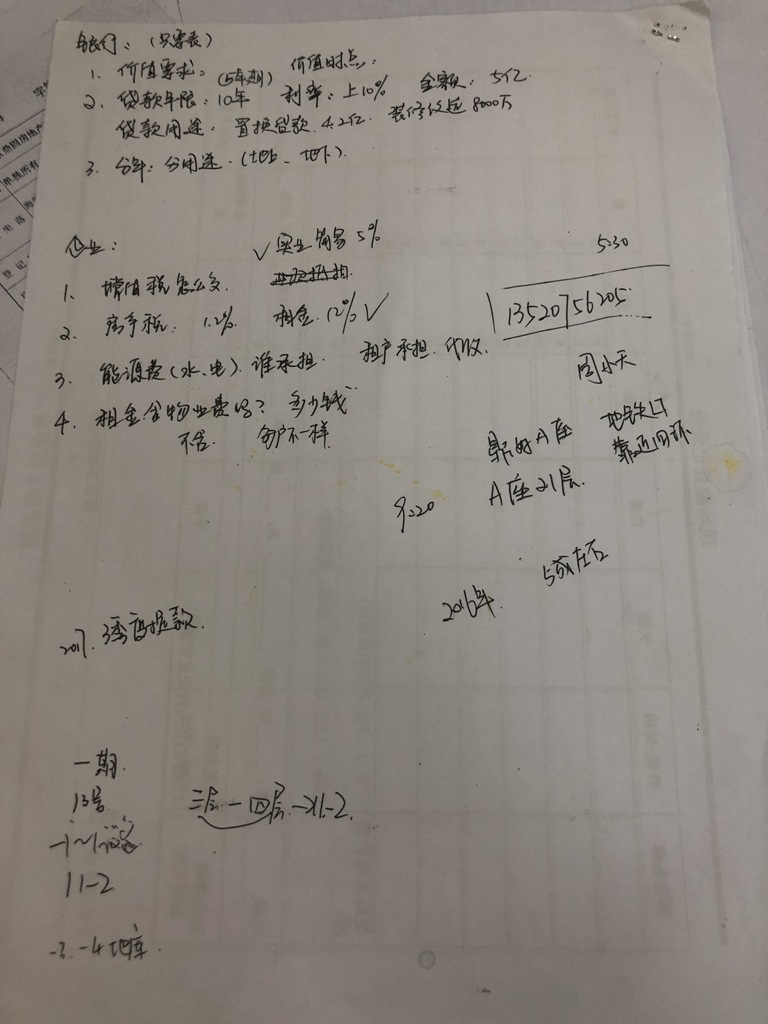 银行：（只需表）
1. 价值需求：（5年期） 价值时点：
2. 贷款年限：10年 利率：上10% 金额：5亿
贷款用途：置换贷款 4.2亿 装修改造8000万
3. 分年：分用途．（地上、地下）
企业：
✓ 营业 贸易 5%
5:30
1. 增值税怎么交．
2. 房产税： 1.2% 租金 12% ✓
13520756205
3. 能源费（水、电）谁承担． 租户承担．代收．
周小天
4. 租金含物业费吗？ 多少钱
不含． 每户不一样
A座
地铁口
靠近四环
A座21层．
9:20
2016年． 5万左右
2017. 3季度提款．
一期．
13号
三层－四层→11-2.
-1~1
11-2
-3.-4地库．